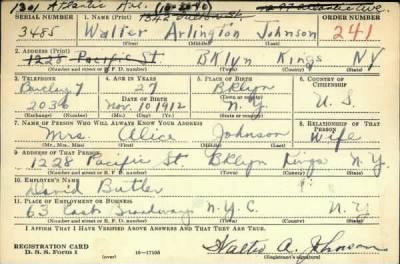 1301 Atlantic Ave. (10-20-40)
SERIAL NUMBER 1. NAME (Print) ORDER NUMBER
3485 Walter Arlington Johnson 241
2. ADDRESS (Print)
1228 Pacific St Bklyn Kings NY
(Number and street or R. F. D. number) (Town) (County) (State)
3. TELEPHONE 4. AGE IN YEARS 5. PLACE OF BIRTH 6. COUNTRY OF CITIZENSHIP
Barclay 7 27 Bklyn
DATE OF BIRTH (Town or county)
2036 Nov. 10 1912 N. Y. U. S.
(Exchange) (Number) (Mo.) (Day) (Yr.) (State or country)
7. NAME OF PERSON WHO WILL ALWAYS KNOW YOUR ADDRESS 8. RELATIONSHIP OF THAT PERSON
Mrs. Alice Johnson Wife
(Mr., Mrs., Miss) (First) (Middle) (Last)
9. ADDRESS OF THAT PERSON
1228 Pacific St. Bklyn Kings N.Y.
(Number and street or R. F. D. number) (Town) (County) (State)
10. EMPLOYER'S NAME
David Butler
11. PLACE OF EMPLOYMENT OR BUSINESS
63 Broadway N.Y.C. N.Y
(Number and street or R. F. D. number) (Town) (County) (State)
I AFFIRM THAT I HAVE VERIFIED ABOVE ANSWERS AND THAT THEY ARE TRUE.
REGISTRATION CARD
D. S. S. Form 1 (over) 16-17105 Walter A. Johnson
(Registrant's signature)